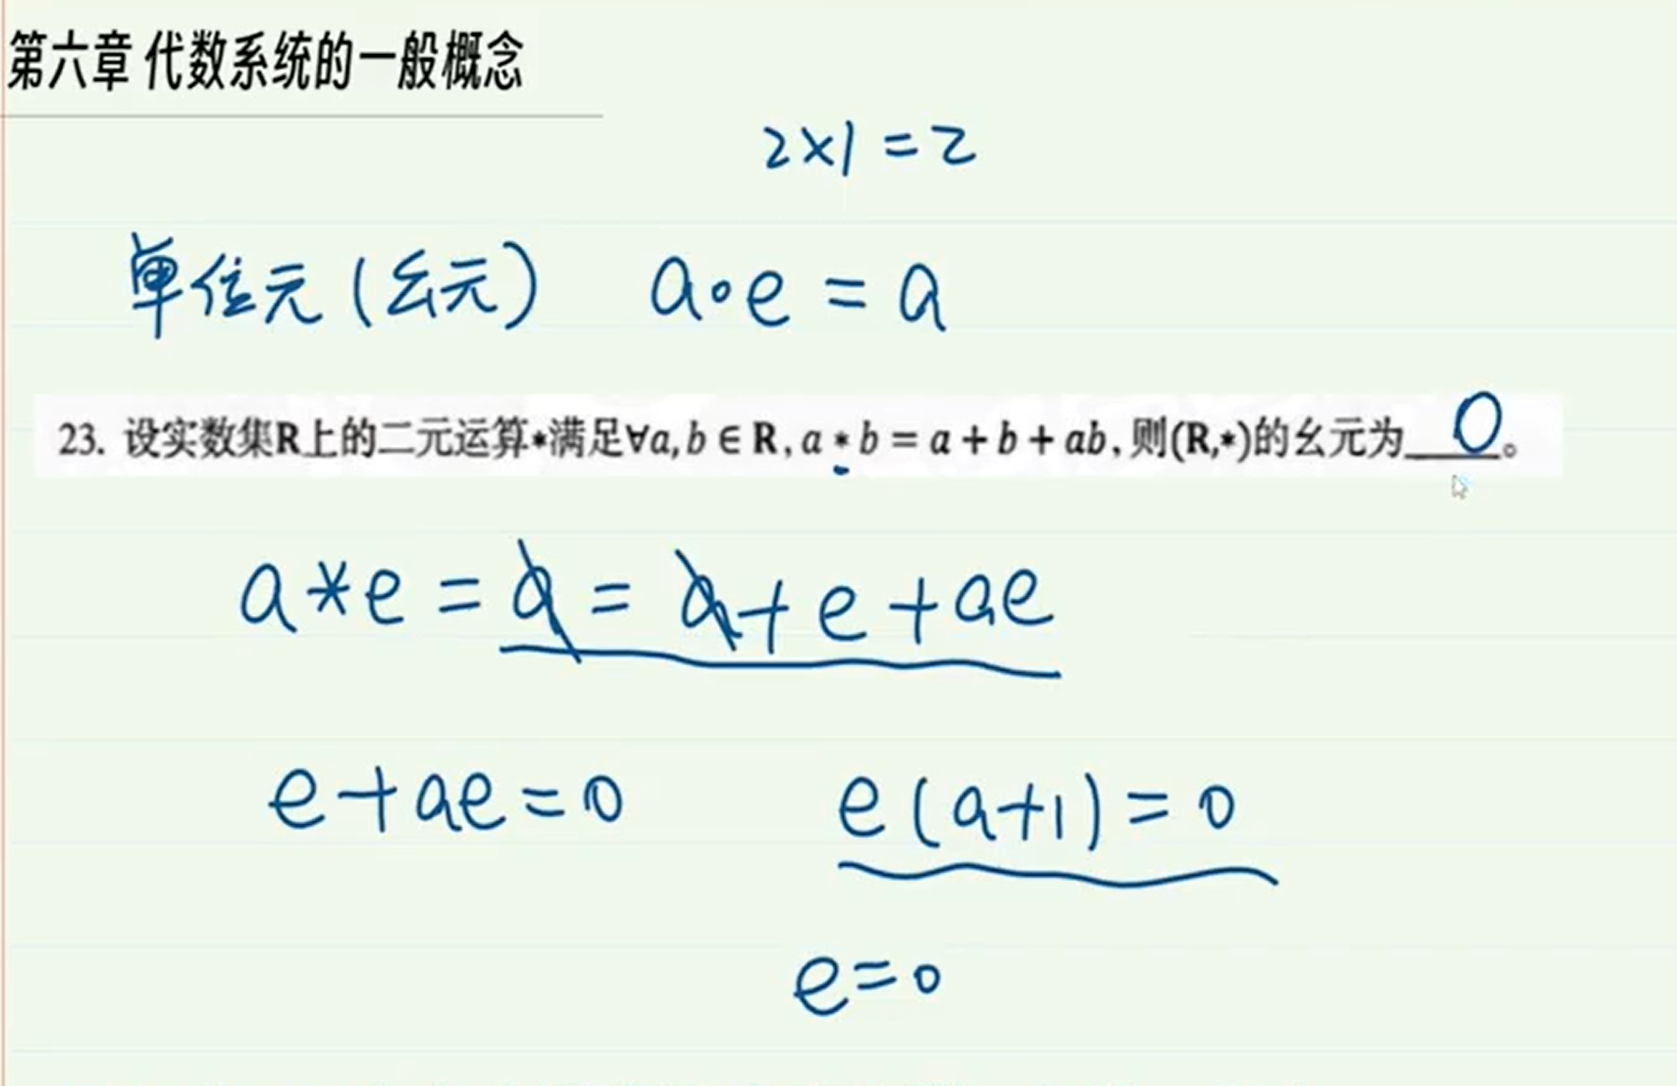 第六章 代数系统的一般概念
2×1=2
单位元(幺元) a∘e=a
23. 设实数集R上的二元运算*满足∀a,b∈R,a*b=a+b+ab,则(R,*)的幺元为 0 。
a*e=a=a+e+ae
e+ae=0 e(a+1)=0
e=0